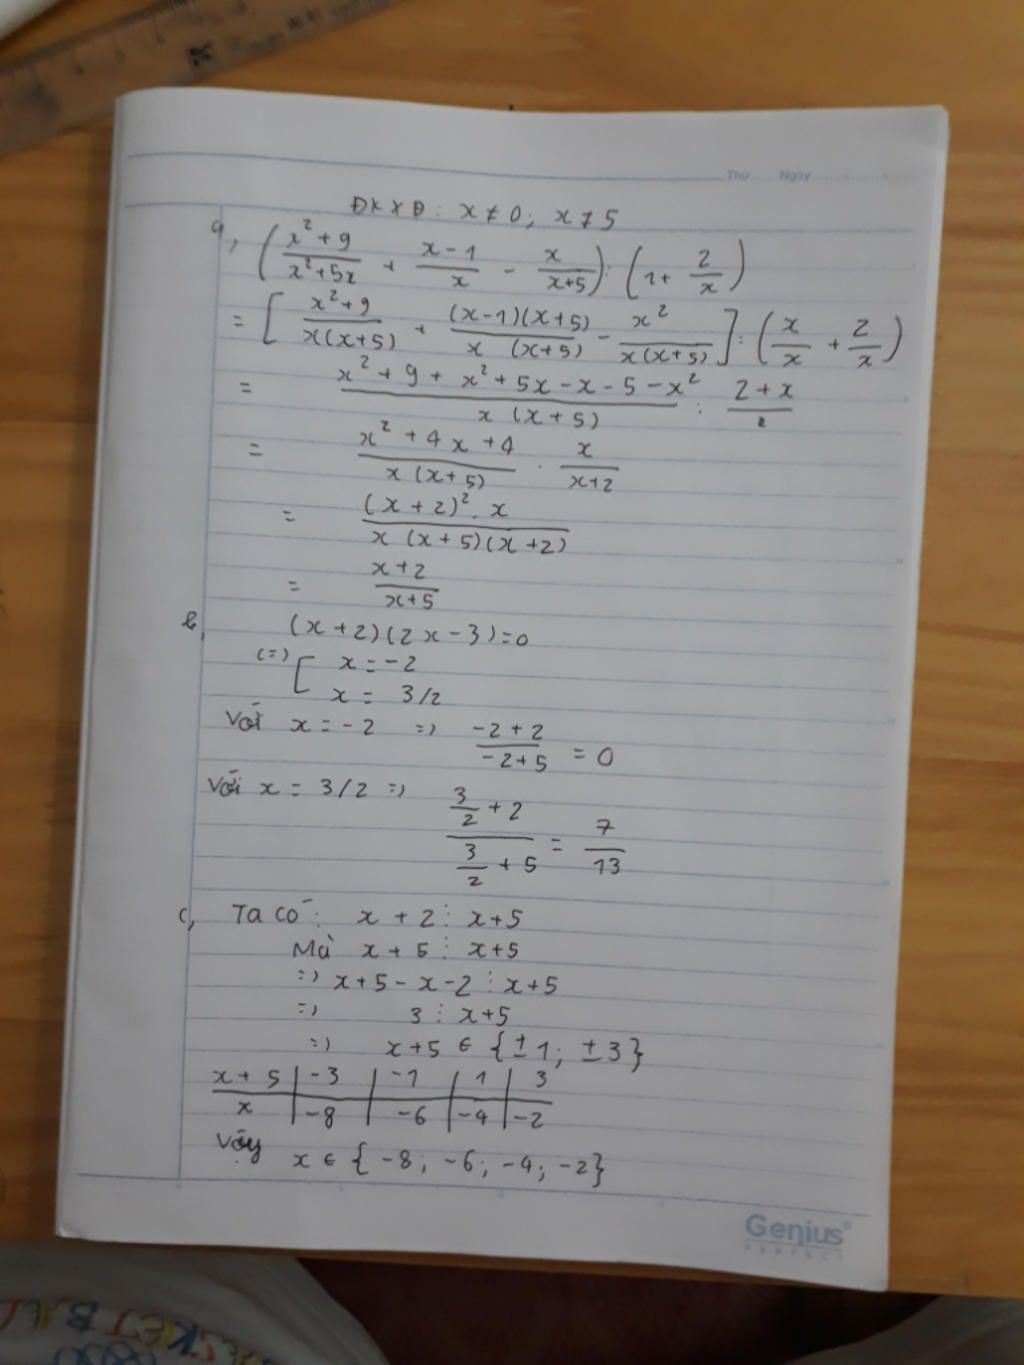 Thứ Ngày
ĐKXĐ: x ≠ 0; x ≠ 5
a, ( (x² + 9)/(x² + 5x) + (x - 1)/x - x/(x+5) ) : ( 1 + 2/x )
= [ (x² + 9)/(x(x+5)) + ((x-1)(x+5))/(x (x+5)) - x²/(x(x+5)) ] : ( x/x + 2/x )
= (x² + 9 + x² + 5x - x - 5 - x²)/(x (x + 5)) : (2 + x)/x
= (x² + 4x + 4)/(x (x + 5)) . x/(x+2)
= ((x + 2)² . x)/(x (x + 5)(x + 2))
= (x + 2)/(x+5)
b, (x + 2)(2x - 3) = 0
(=) [ x = -2
x = 3/2
Với x = -2 => (-2 + 2)/(-2+5) = 0
Với x = 3/2 => (3/2 + 2)/(3/2 + 5) = 7/13
c, Ta có: x + 2 ⋮ x+5
Mà x + 5 ⋮ x+5
=> x+5 - x - 2 ⋮ x+5
=> 3 ⋮ x+5
=> x+5 ∈ {±1; ±3}
x + 5 | -3 | -1 | 1 | 3
x | -8 | -6 | -4 | -2
Vậy x ∈ { -8; -6; -4; -2}
Genius
PERFECT